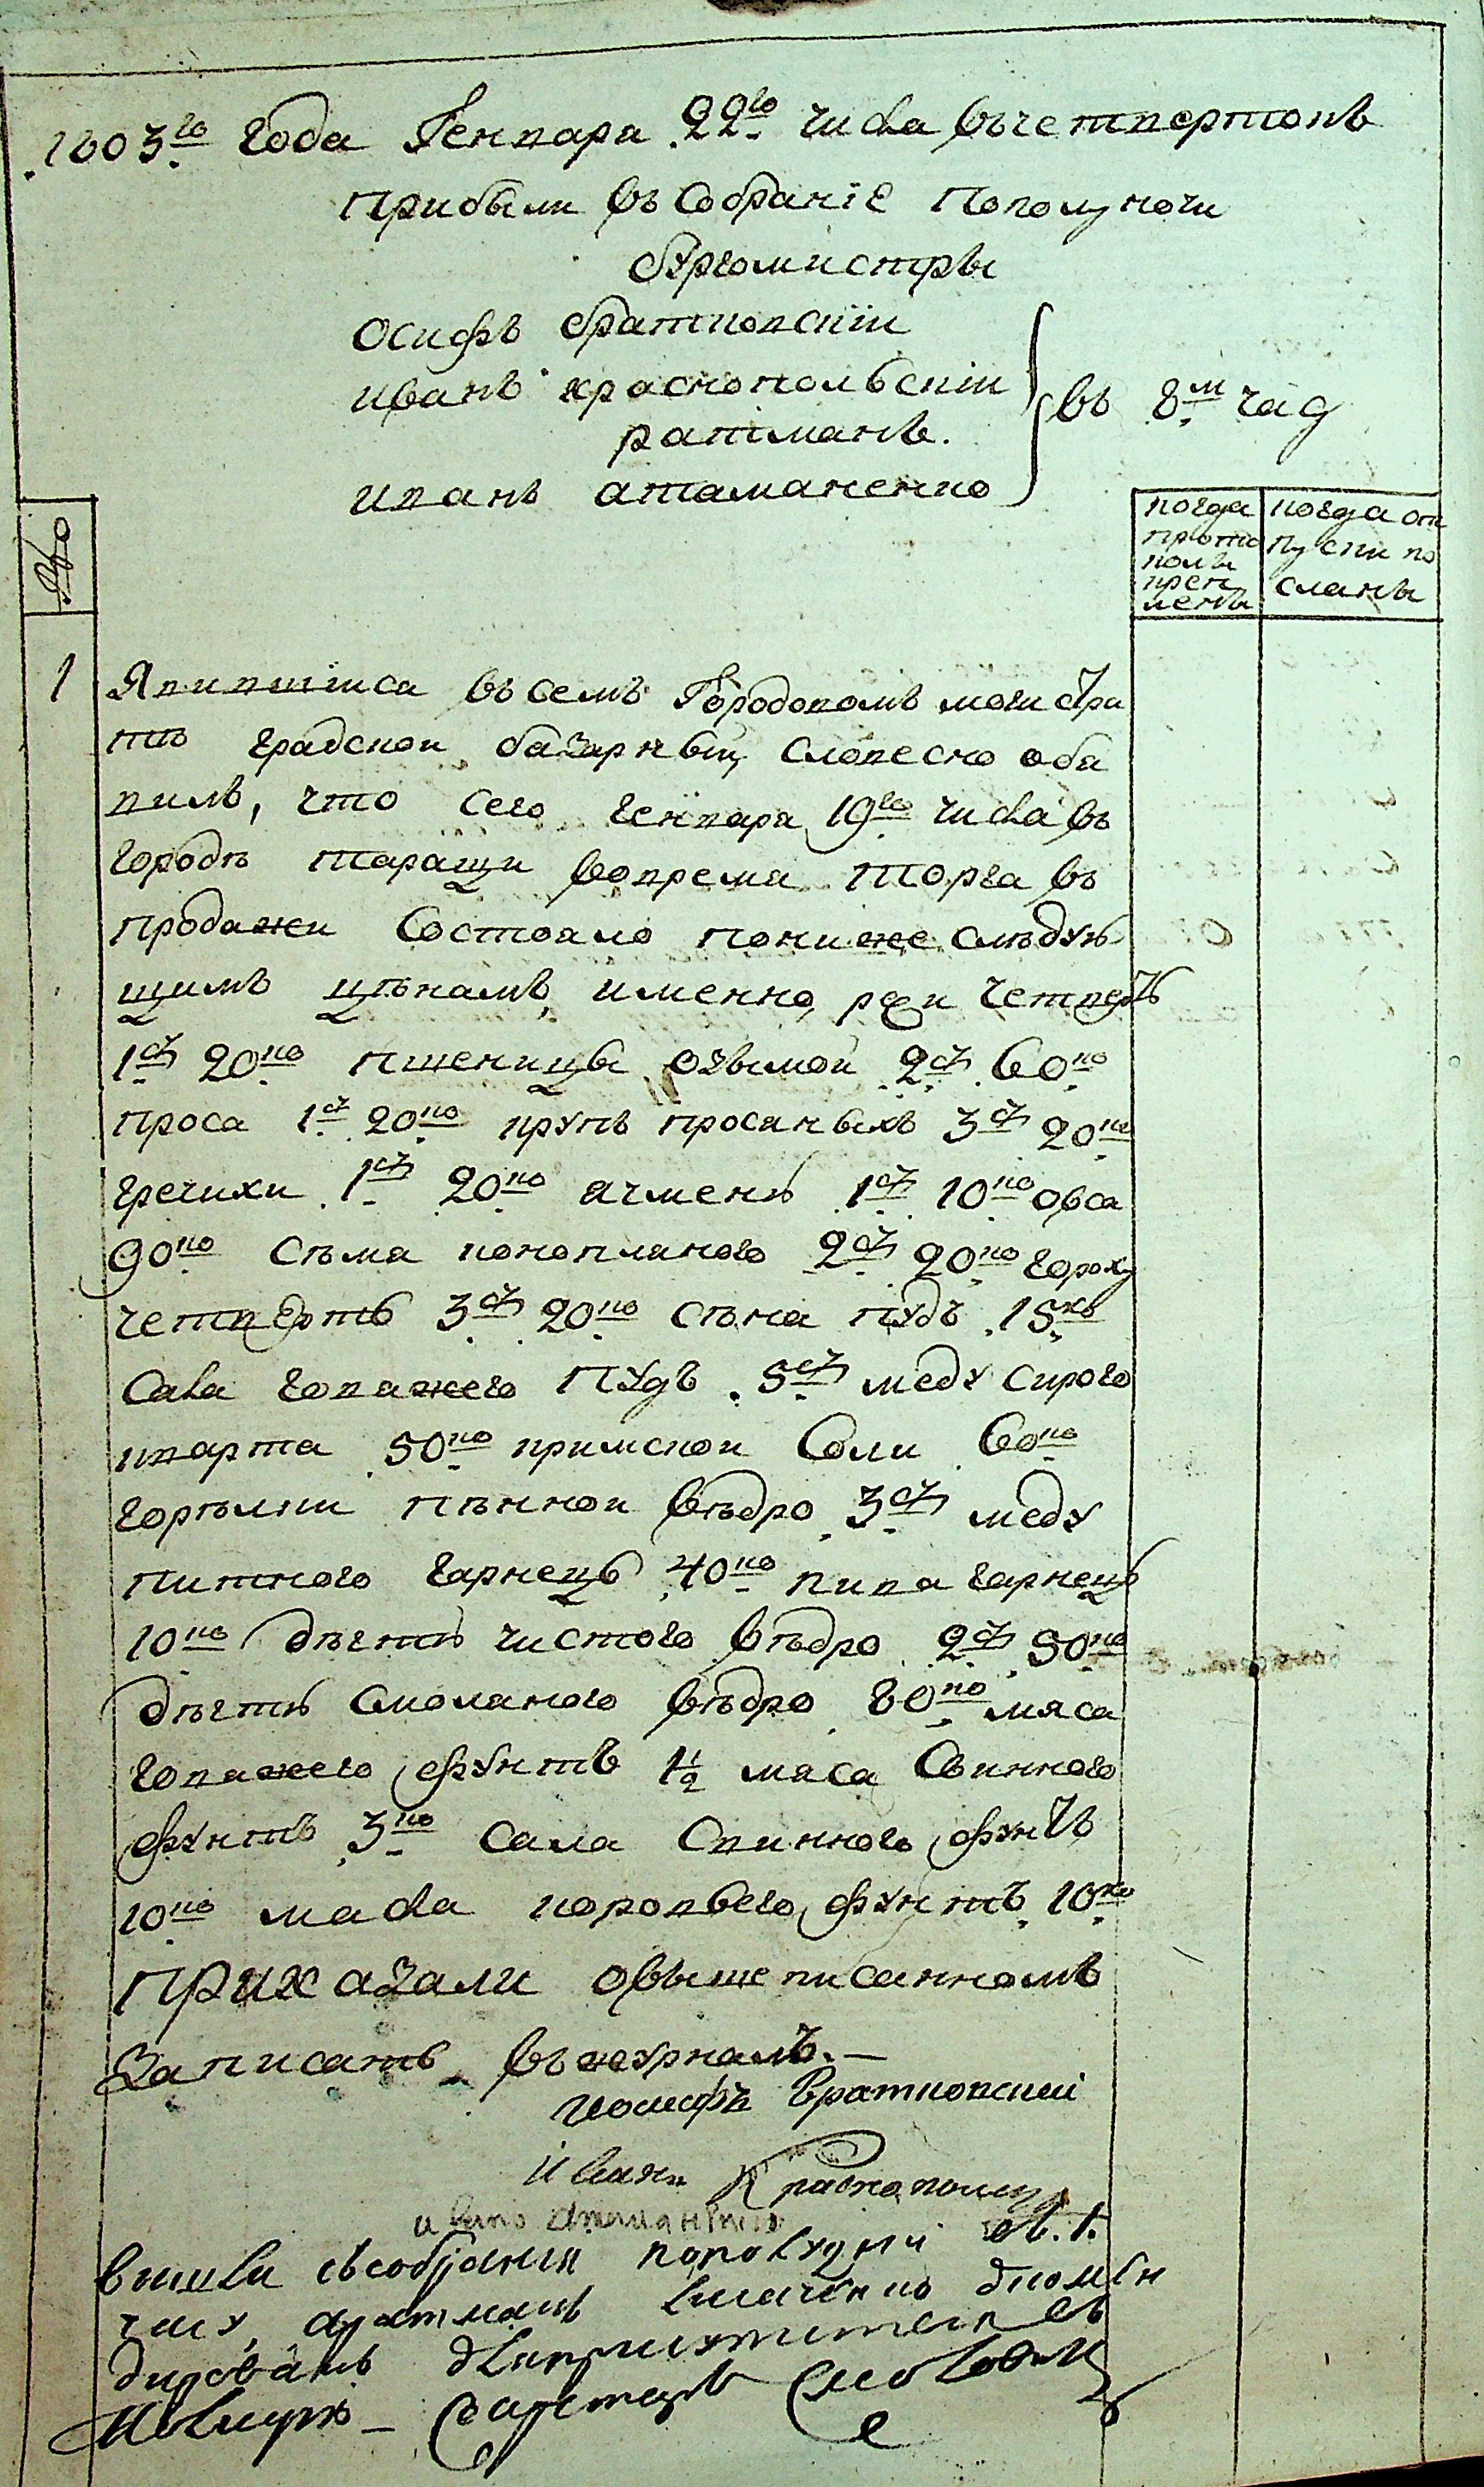 1803го года Генваря 22го числа въ четвертокъ
прибыли въ собраніе пополуночи
бургомистры
осифъ братковскій
иванъ краснопольскій
ратманъ.
иванъ атаманенко
въ 8м часу
когда прото колъ крѣп ленъ
когда от пуски по сланы
1 Явившійся въ семъ Городовомъ магистра
тѣ градской базарный словесно обя
вилъ, что сего генваря 19го числа въ
городѣ таращи вовремя торга въ
продажи состояло пониже слѣдую
щимъ цѣнамъ, именно, ржи четверть
1р 20ко пшеницы озымой 2р 60ко
проса 1р 20ко крупъ просяныхъ 3р 20ко
гречихи 1р 20ко ячменю 1р 10ко овса
90ко сѣмя коноплянаго 2р 20ко гороху
четверть 3р 20ко сѣна пудъ 15ко
сала говяжего пудъ 5р меду сирого
кварта 50ко кримской соли 60ко
горѣлки пѣнной вѣдро 3р меду
питного гарнецъ 40ко пива гарнецъ
10ко дѣгтю чистого вѣдро 2р 50ко
дѣгтю смоляного вѣдро 80ко мяса
говяжего фунтъ 1½ мяса свинного
фунтъ 3ко сала свинного фунтъ
10ко масла коровьего фунтъ 10ко
приказали овышеписанномъ
записать въ журналъ.—
Иосифъ Братковский
Иванъ Краснополск
иванъ атаманенко
вышли съ собрания пополудни въ 1.
часу, аратманъ